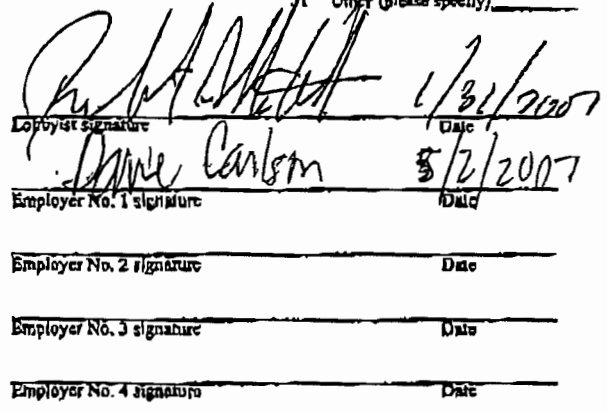 Other (please specify)
1/31/2007
Lobbyist signature Date
Carlson 5/2/2007
Employer No. 1 signature Date
Employer No. 2 signature Date
Employer No. 3 signature Date
Employer No. 4 signature Date